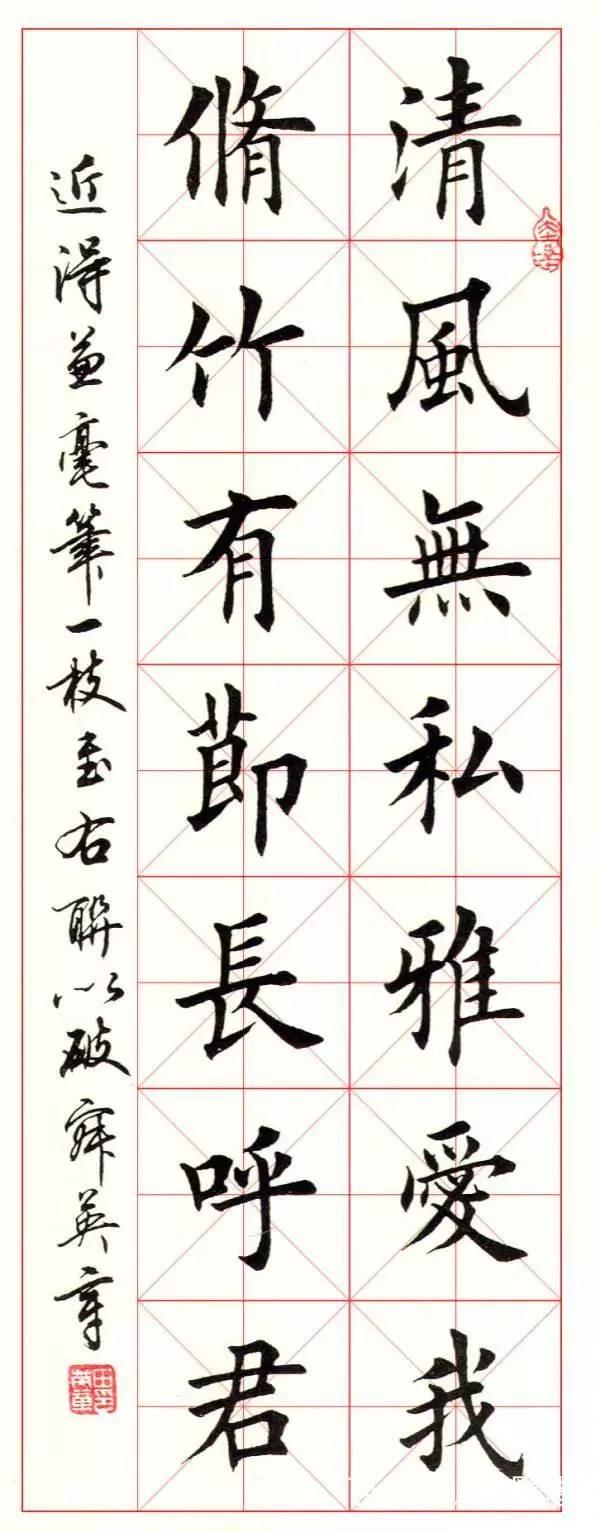 清風無私雅愛我
脩竹有莭長呼君
近得兼毫筆一枝書右聯以破寂英章
田英章印